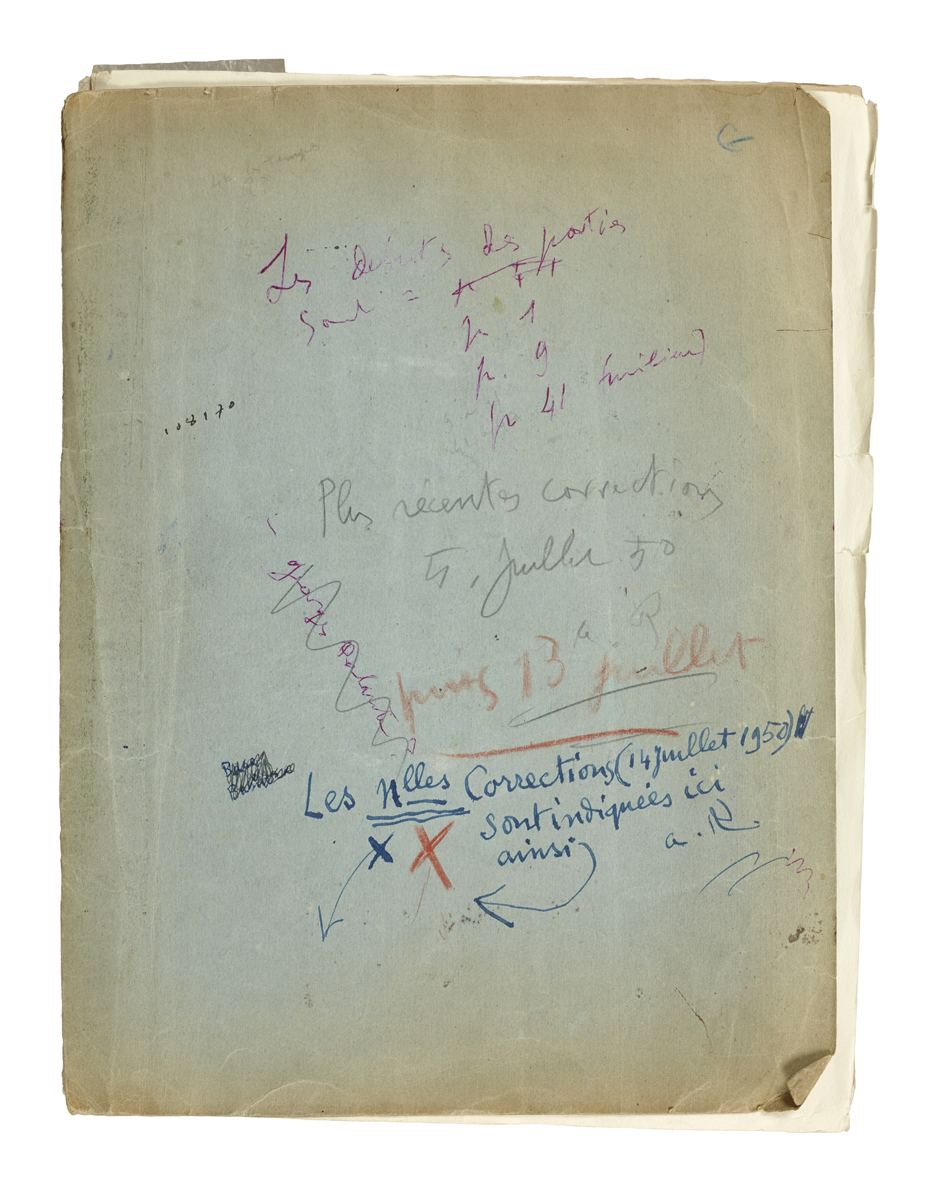 Les débuts des parties
sont =
p 1
p. 9
p 41 (milieu)
108170
Plus récentes corrections
5. Juillet 50
puis 13 juillet
Les nlles Corrections (14 juillet 1950)
sont indiquées ici
ainsi
a. R.